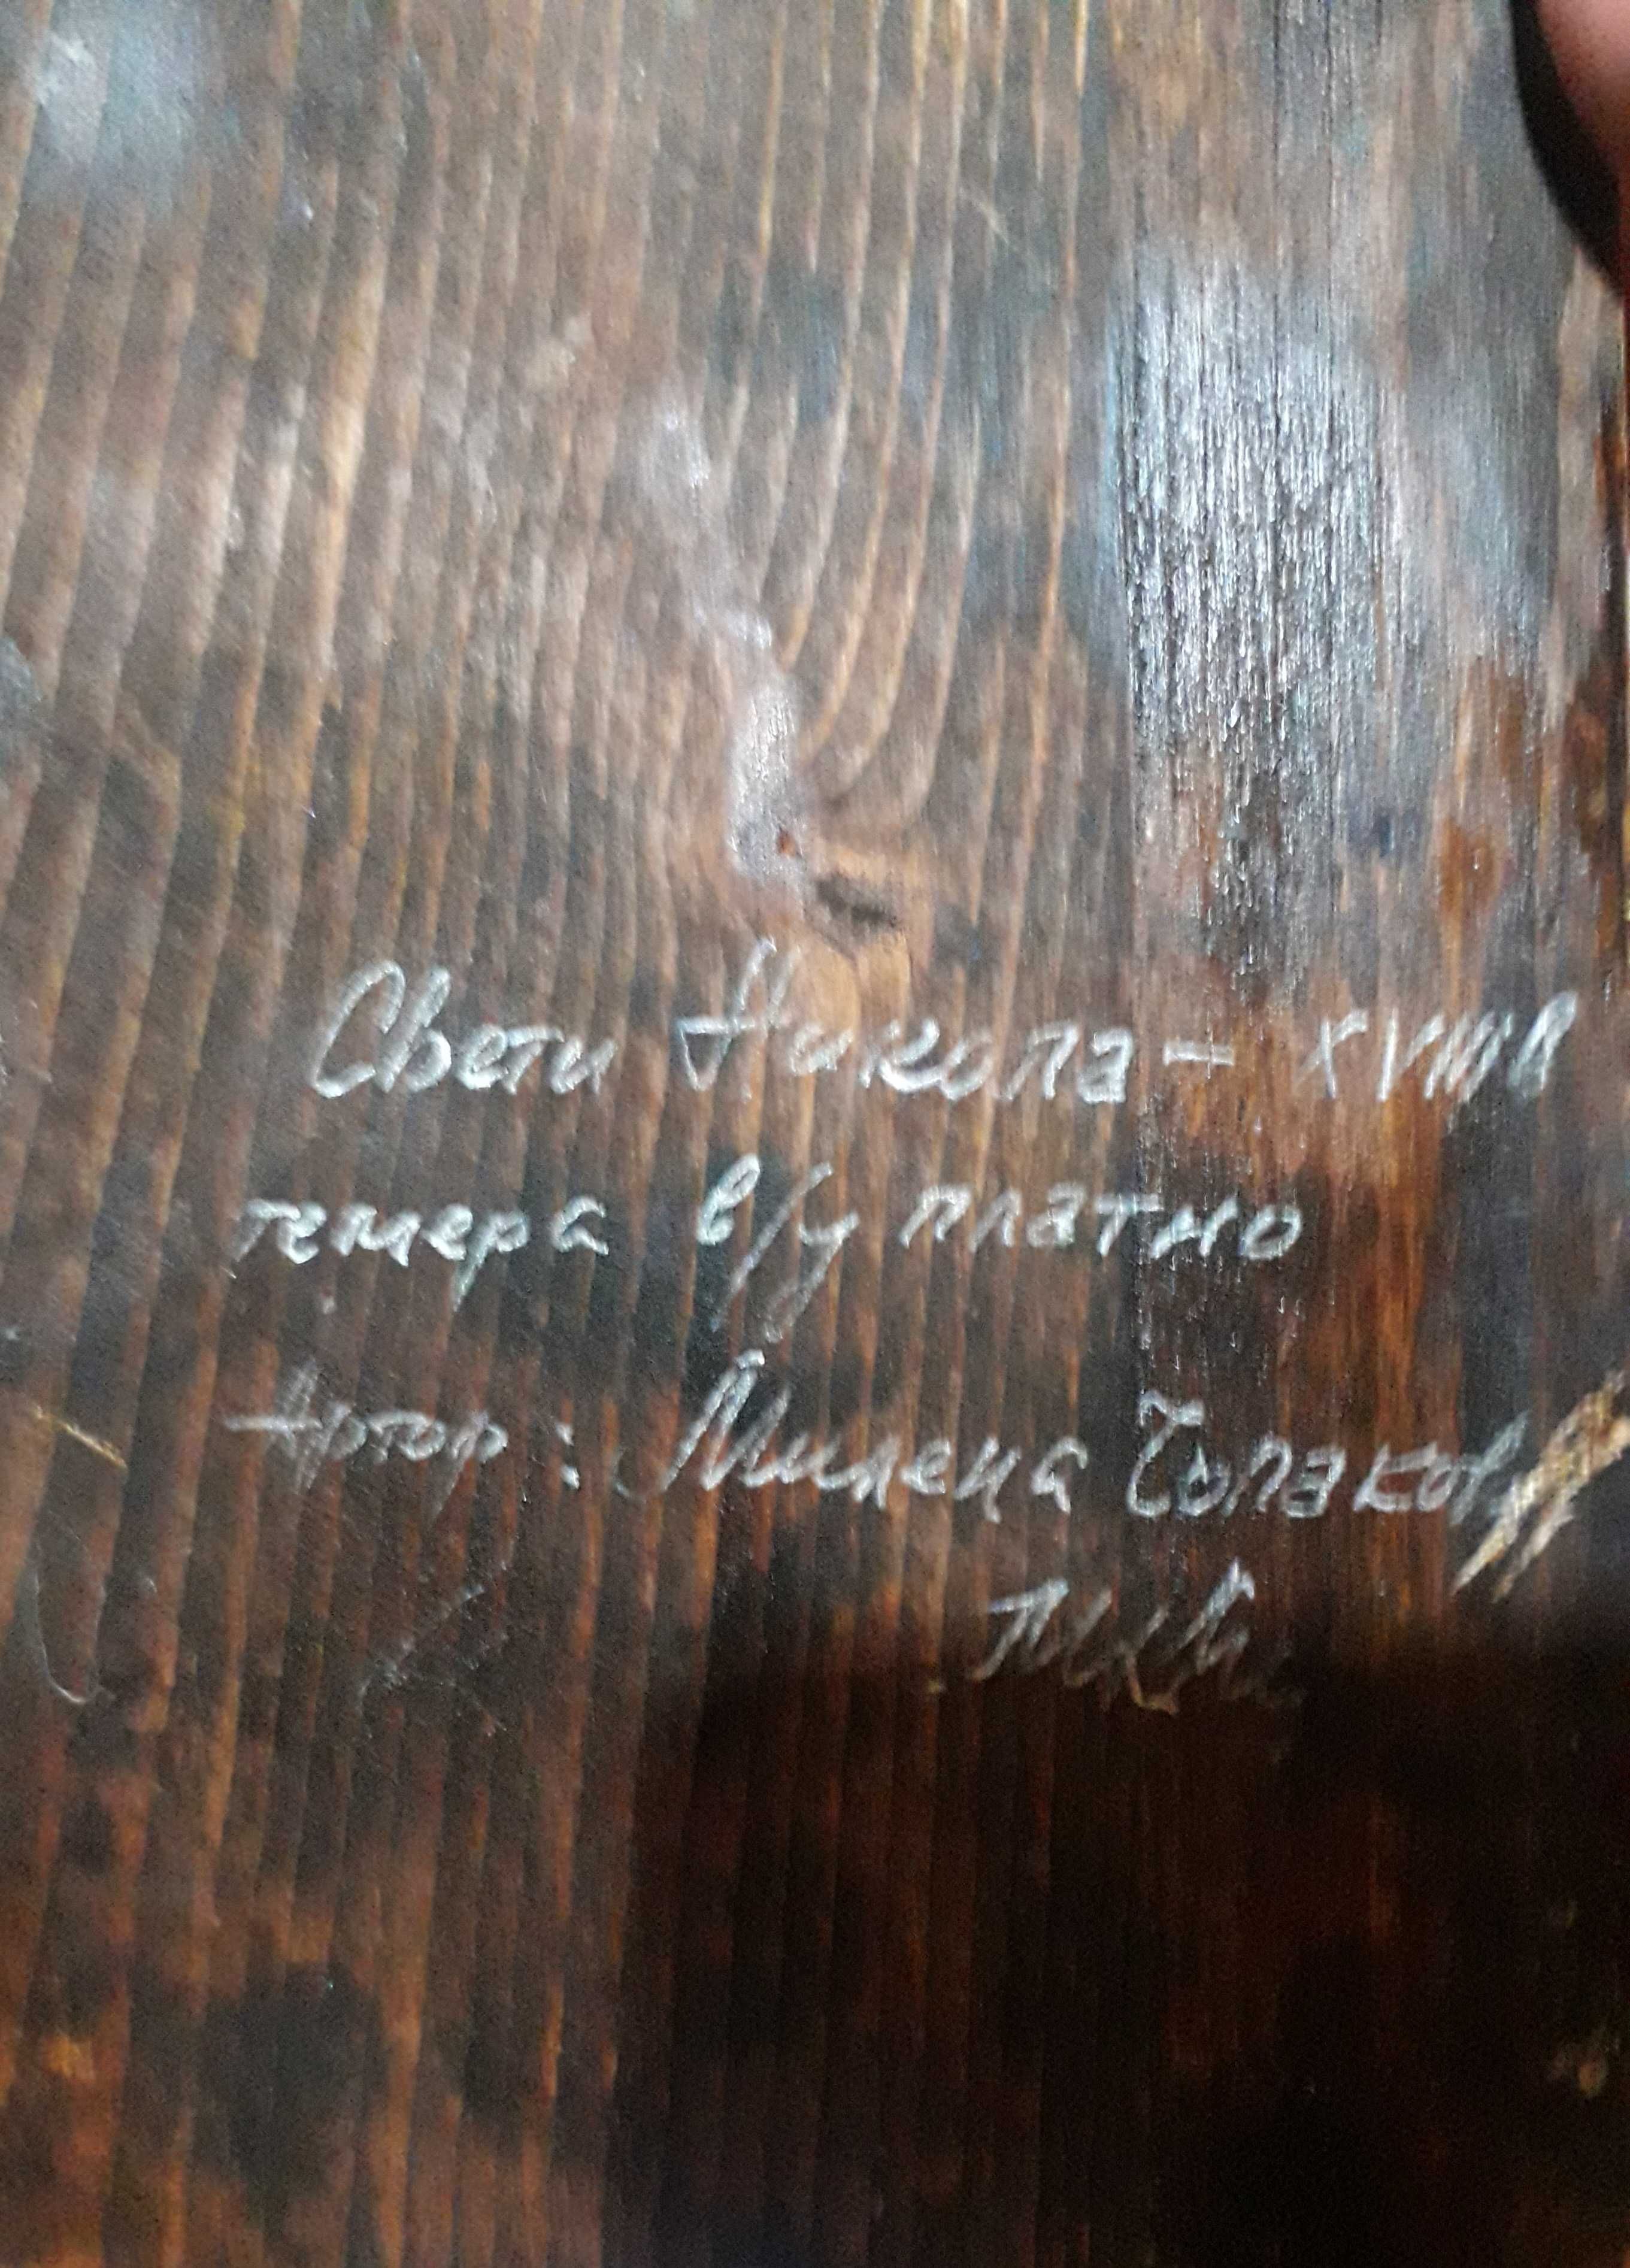 Свети Никола - XVIII в
темпера в/у платно
Автор: Милена Чолакова